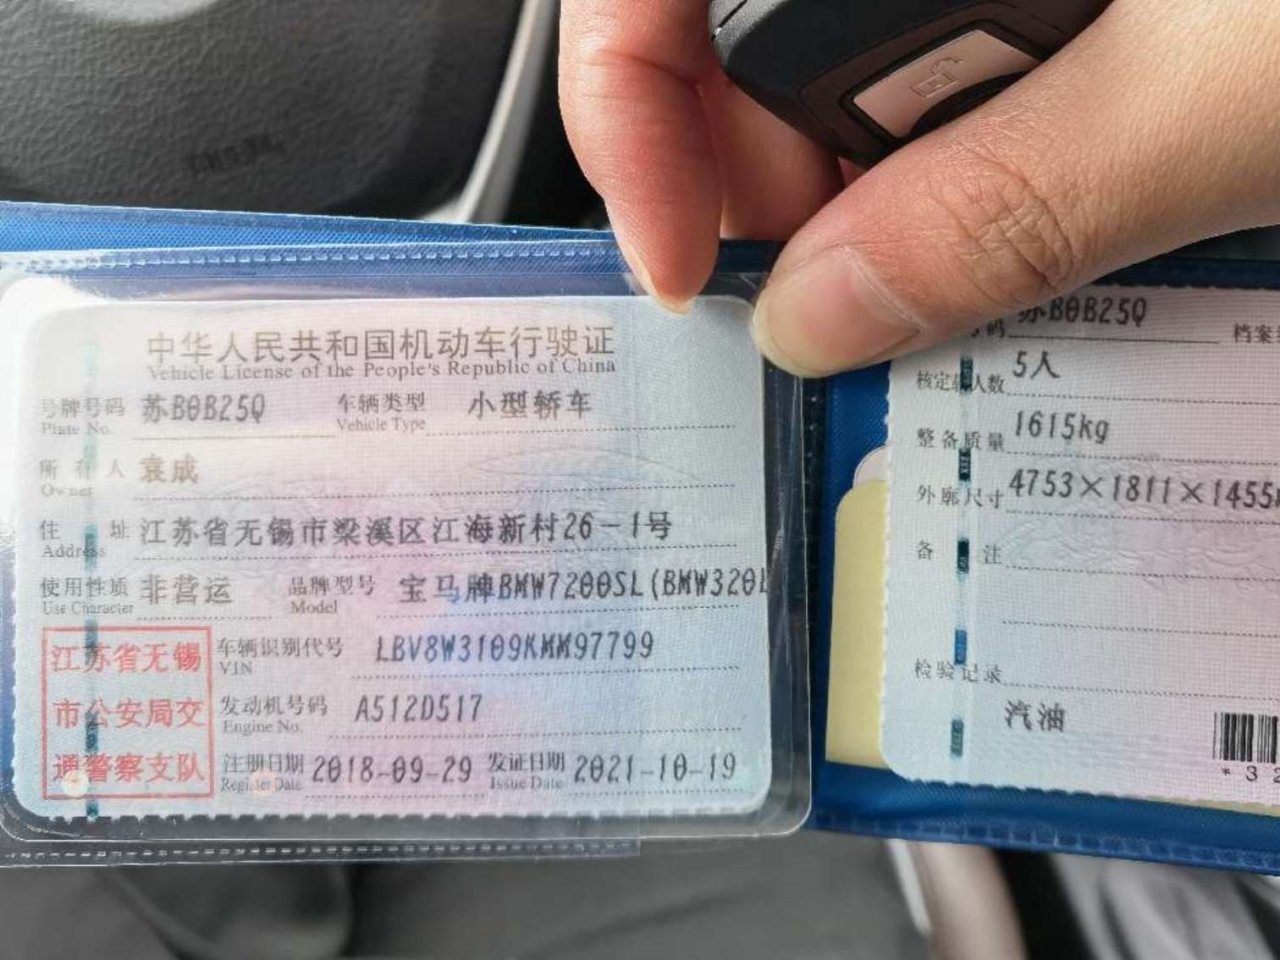 中华人民共和国机动车行驶证
Vehicle License of the People's Republic of China
号牌号码 苏B0B25Q 车辆类型 小型轿车
Plate No. Vehicle Type
所有人 袁成
Owner
住址 江苏省无锡市梁溪区江海新村26-1号
Address
使用性质 非营运 品牌型号 宝马牌BMW7200SL(BMW320L
Use Character Model
江苏省无锡
市公安局交
通警察支队
车辆识别代号 LBV8W3109KMM97799
VIN
发动机号码 A512D517
Engine No.
注册日期 2018-09-29 发证日期 2021-10-19
Register Date Issue Date
号码 苏B0B25Q 档案
核定载人数 5人
整备质量 1615kg
外廓尺寸 4753×1811×1455
备注
检验记录
汽油
*32